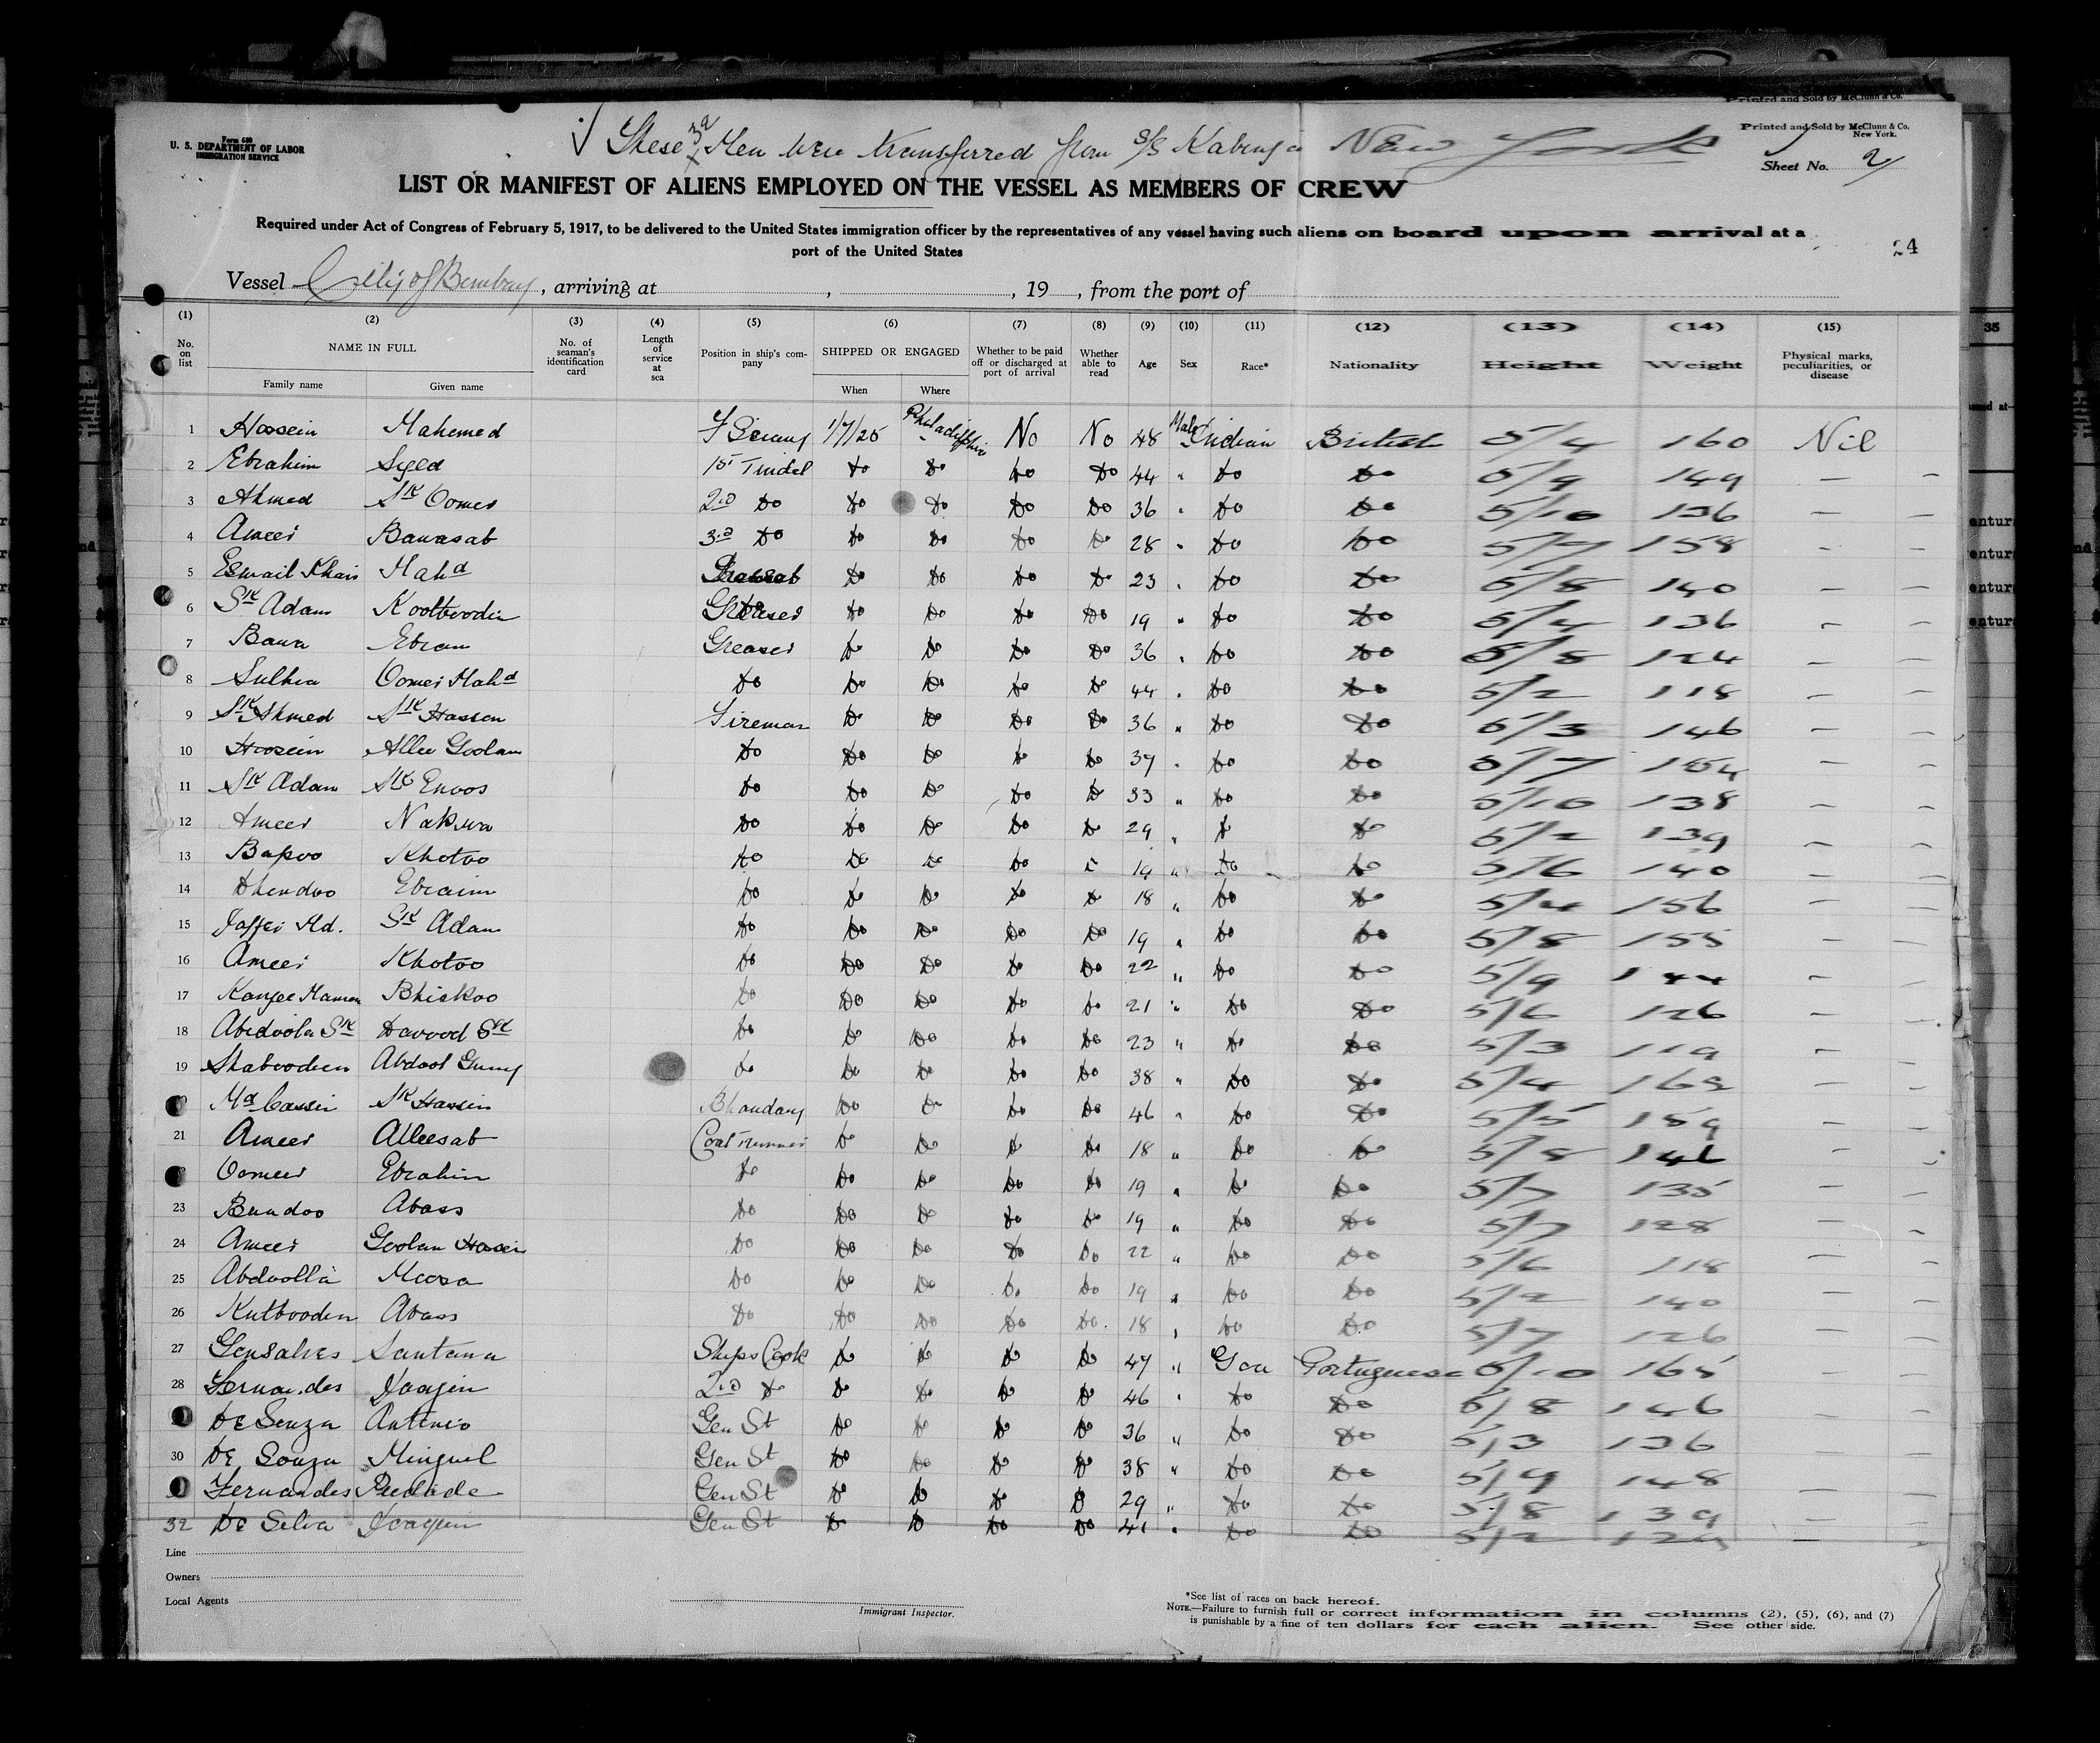 Printed and Sold by McClunn & Co.
Form 680
U. S. DEPARTMENT OF LABOR
IMMIGRATION SERVICE
These 32 Men were transferred from S/S Kabinga New York
Printed and Sold by McClunn & Co.
New York.
Sheet No. 2
LIST OR MANIFEST OF ALIENS EMPLOYED ON THE VESSEL AS MEMBERS OF CREW
Required under Act of Congress of February 5, 1917, to be delivered to the United States immigration officer by the representatives of any vessel having such aliens on board upon arrival at a
port of the United States
24
Vessel City of Bombay, arriving at , , 19 , from the port of
(1) (2) (3) (4) (5) (6) (7) (8) (9) (10) (11) (12) (13) (14) (15)
No. on list NAME IN FULL No. of seaman's identification card Length of service at sea Position in ship's company SHIPPED OR ENGAGED Whether to be paid off or discharged at port of arrival Whether able to read Age Sex Race* Nationality Height Weight Physical marks, peculiarities, or disease
Family name Given name When Where
1 Hossein Mahomed F Serang 1/7/25 Philadelphia No No 48 Male Indian British 5/4 160 Nil
2 Ebrahim Syed 1st Tindel Do Do Do Do 44 " Do Do 5/9 149 —
3 Ahmed Sk Oomer 2nd Do Do Do Do Do 36 " Do Do 5/10 136 —
4 Ameer Bawasab 3rd Do Do Do Do Do 28 " Do Do 5/7 158 —
5 Esmail Khan Mahd Do Do Do Do 23 " Do Do 5/8 140 —
6 Sk Adam Kootboodin Greaser Do Do Do Do 19 " Do Do 5/4 136 —
7 Bawa Ebram Greaser Do Do Do Do 36 " Do Do 5/8 124 —
8 Oomer Mahd Do Do Do Do Do 44 " Do Do 5/2 118 —
9 Sk Ahmed Sk Hassen Fireman Do Do Do Do 36 " Do Do 5/3 146 —
10 Hossein Allee Goolam Do Do Do Do Do 39 " Do Do 5/7 154 —
11 Sk Adam Sk Do Do Do Do Do 33 " Do Do 5/10 138 —
12 Ameer Nakwa Do Do Do Do Do 29 " Do Do 5/2 139 —
13 Bapoo Khotoo Do Do Do Do Do 19 " Do Do 5/6 140 —
14 Dhendoo Ebraim Do Do Do Do Do 18 " Do Do 5/4 156 —
15 Jaffer Md. Sk Adam Do Do Do Do Do 19 " Do Do 5/8 155 —
16 Ameer Khotoo Do Do Do Do Do 22 " Do Do 5/9 144 —
17 Bhickoo Do Do Do Do Do 21 " Do Do 5/6 126 —
18 Abdoola Sk Davood Sk Do Do Do Do Do 23 " Do Do 5/3 119 —
19 Shaboodeen Abdool Do Do Do Do Do 38 " Do Do 5/4 —
Md Cassin Sk Hassin Bhandary Do Do Do Do 46 " Do Do 5/5 159 —
21 Ameer Alleesab Coal Trimmer Do Do Do Do 18 " Do Do 5/8 —
Oomer Ebrahim Do Do Do Do Do 19 " Do Do 5/7 135 —
23 Bundoo Abass Do Do Do Do Do 19 " Do Do 5/7 128 —
24 Ameer Goolam Hosein Do Do Do Do Do 22 " Do Do 5/6 118 —
25 Abdoolla Moosa Do Do Do Do Do 19 " Do Do 5/2 140 —
26 Kutbooden Abass Do Do Do Do Do 18 " Do Do 5/7 126 —
27 Gonsalves Santana Ships Cook Do Do Do Do 47 " Goa Portuguese 5/10 165 —
28 Fernandes Joaqin 2nd Do Do Do Do Do 46 " Do Do 5/8 146 —
De Souza Antonio Gen St Do Do Do Do 36 " Do Do 5/3 136 —
30 De Souza Minguel Gen St Do Do Do Do 38 " Do Do 5/9 148 —
Fernandes Piedade Gen St Do Do Do Do 29 " Do Do 5/8 139 —
32 De Selva Joaquin Gen St Do Do Do Do 41 " Do Do 5/2 —
Line
Owners
Local Agents
Immigrant Inspector.
*See list of races on back hereof.
NOTE.—Failure to furnish full or correct information in columns (2), (5), (6), and (7)
is punishable by a fine of ten dollars for each alien. See other side.
35